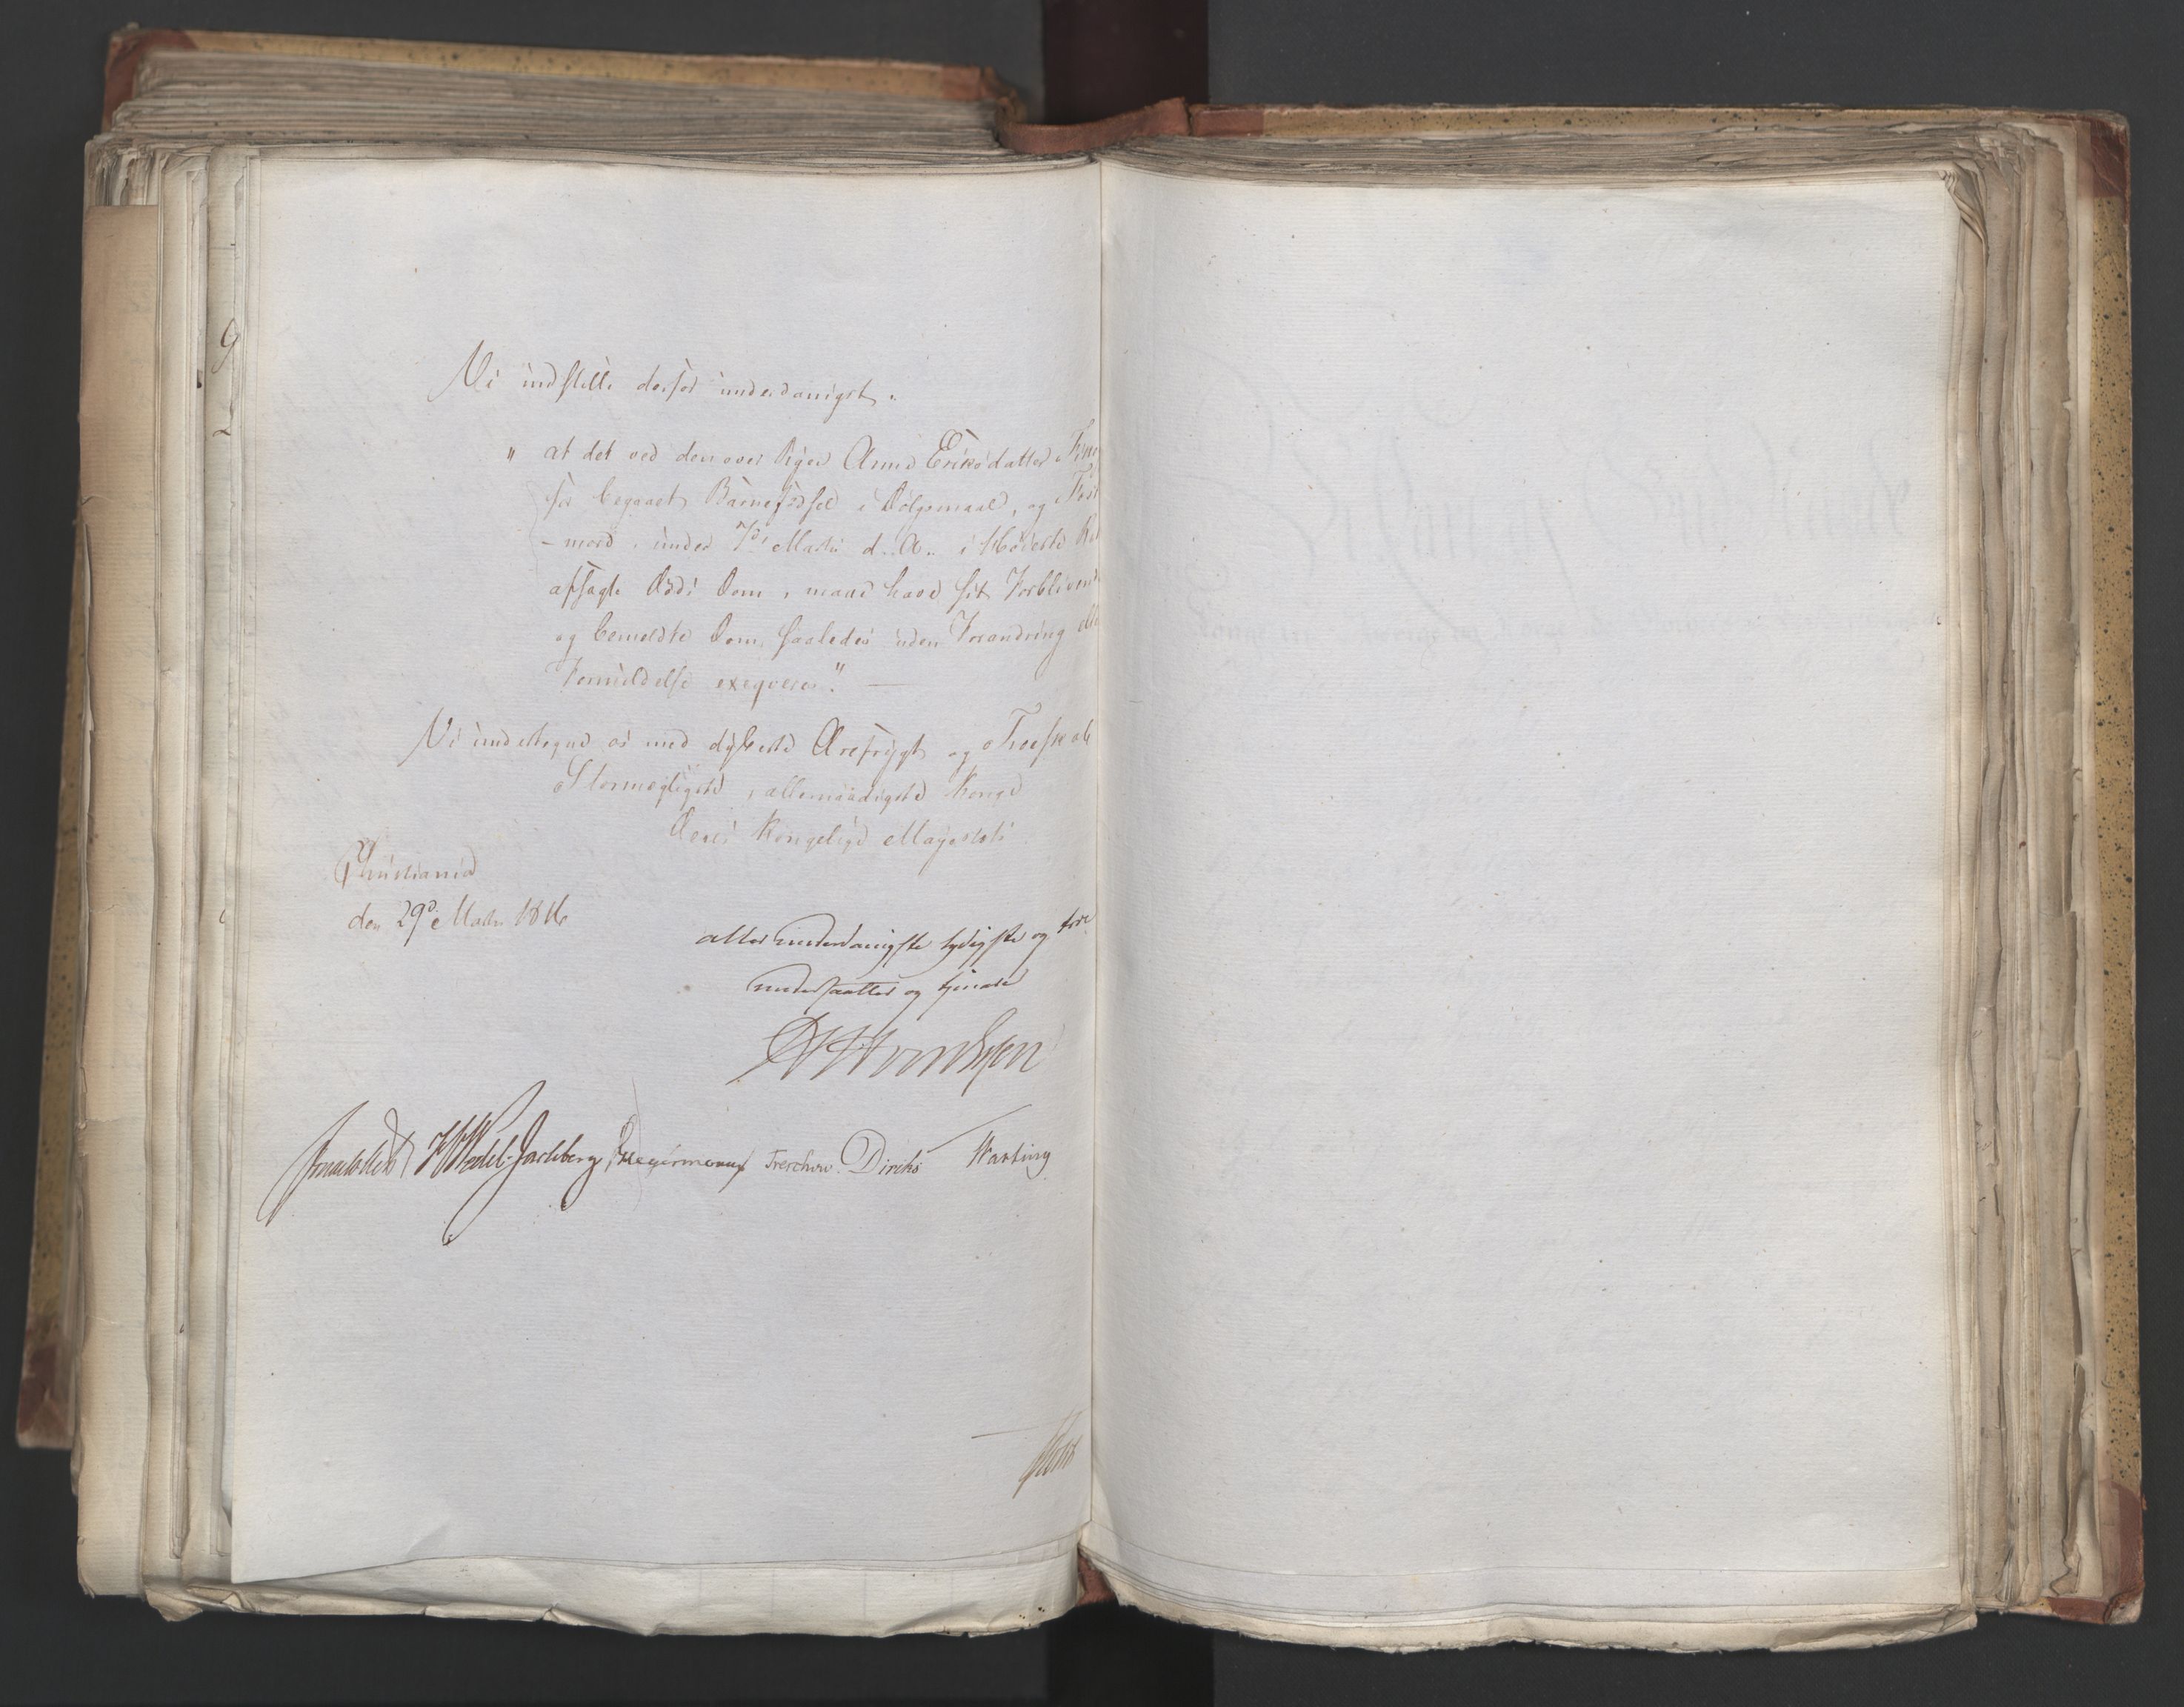 Vi indstille derfor underdanigst:
" at det ved den over Pigen Anne Eriksdatter
for begaaet Barnefødsel i Dølgsmaal, og
mord, under 7de Martii d. A. i Høieste
afsagte Døds Dom, maae have sit Forblivend
og bemeldte Dom saaledes uden Forandring elle
Formildelse exeqveres." —
Vi undertegne os med dybeste Ærefrygt og Troeskab
Stormægtigste, allernaadigste Konge
Deres Kongelige Majestæts
Christiania
den 29de Martii 1816
allerunderdanigste lydigste og troe
undersaatter og tjenere
Sommerhielm HWedel-Jarlsberg, DHegermann Treschow. Diriks